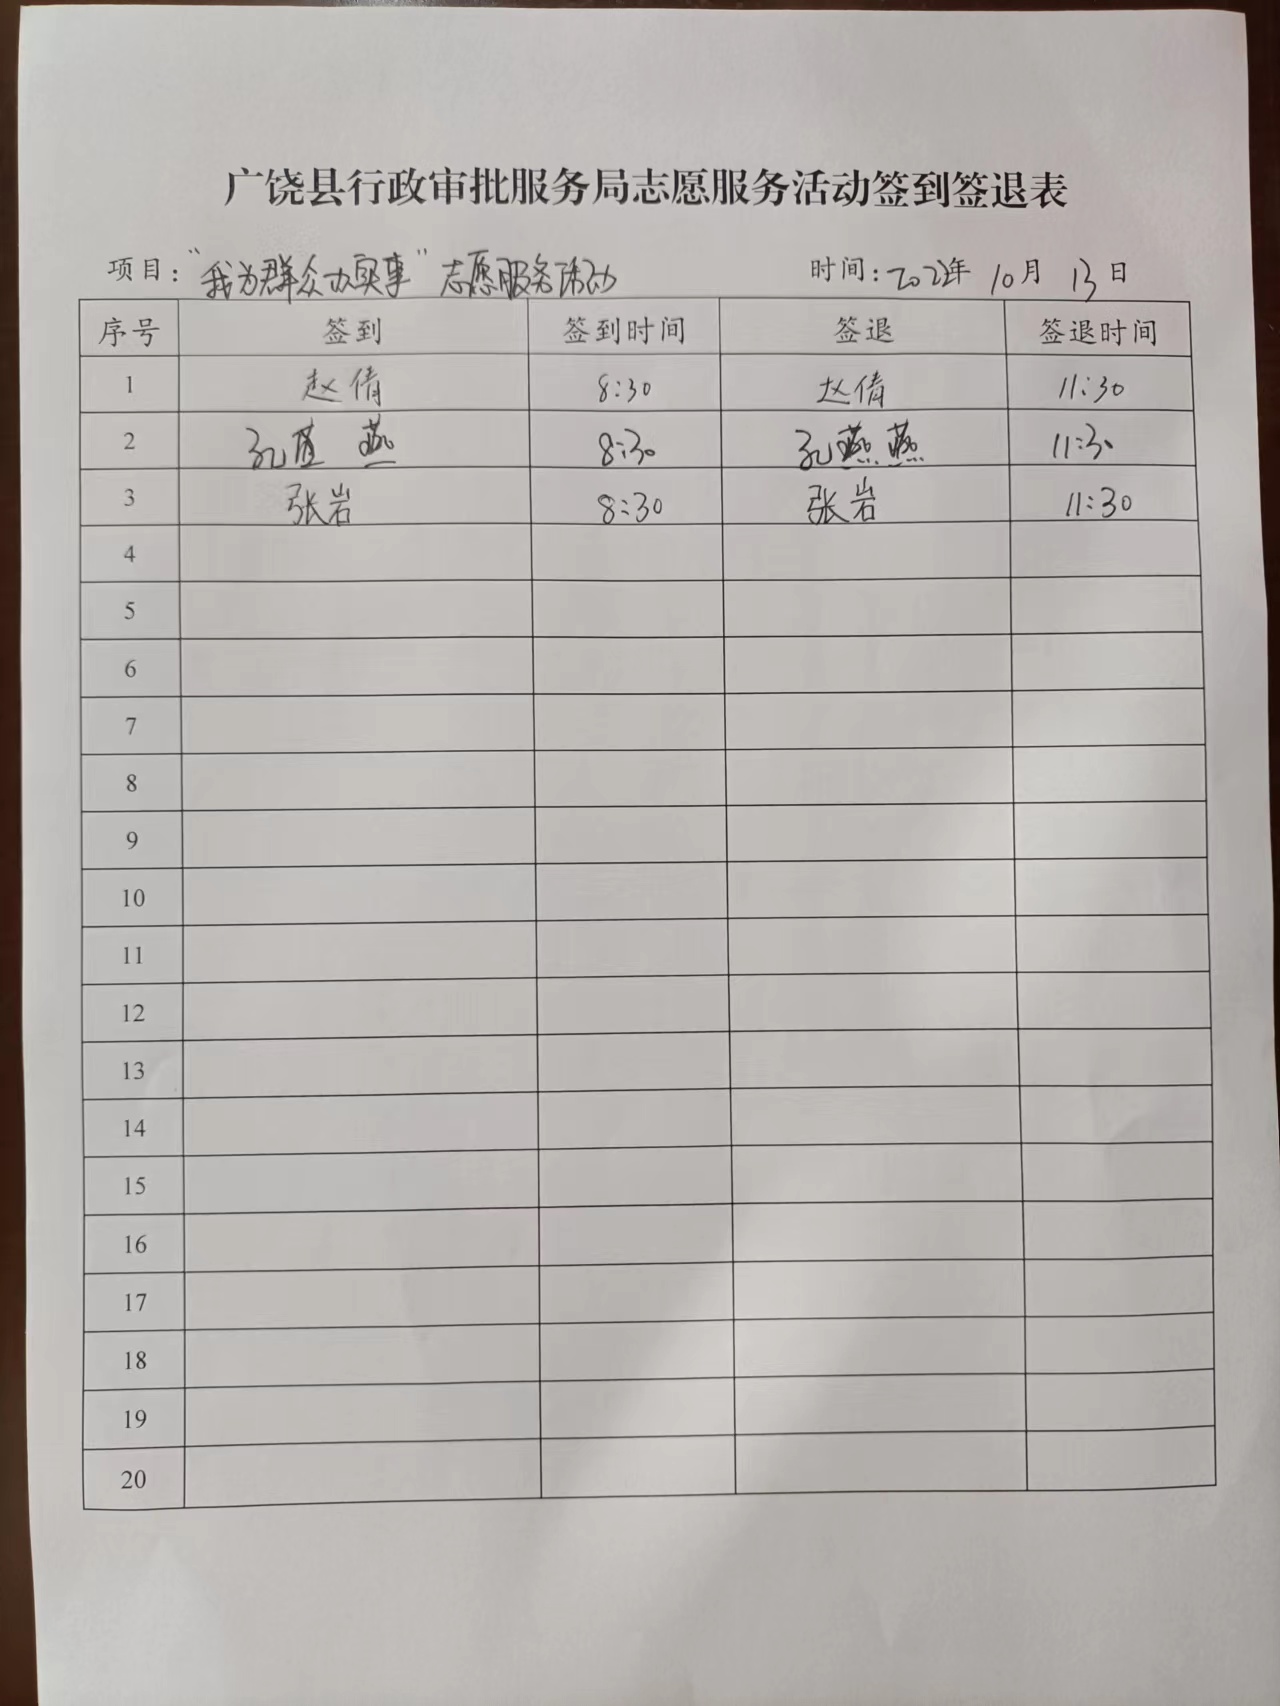 广饶县行政审批服务局志愿服务活动签到签退表
项目：“我为群众办实事”志愿服务活动 时间：2022年 10月 13日
序号 签到 签到时间 签退 签退时间
1 赵倩 8:30 赵倩 11:30
2 孔 燕 8:30 孔燕燕 11:30
3 张岩 8:30 张岩 11:30
4
5
6
7
8
9
10
11
12
13
14
15
16
17
18
19
20